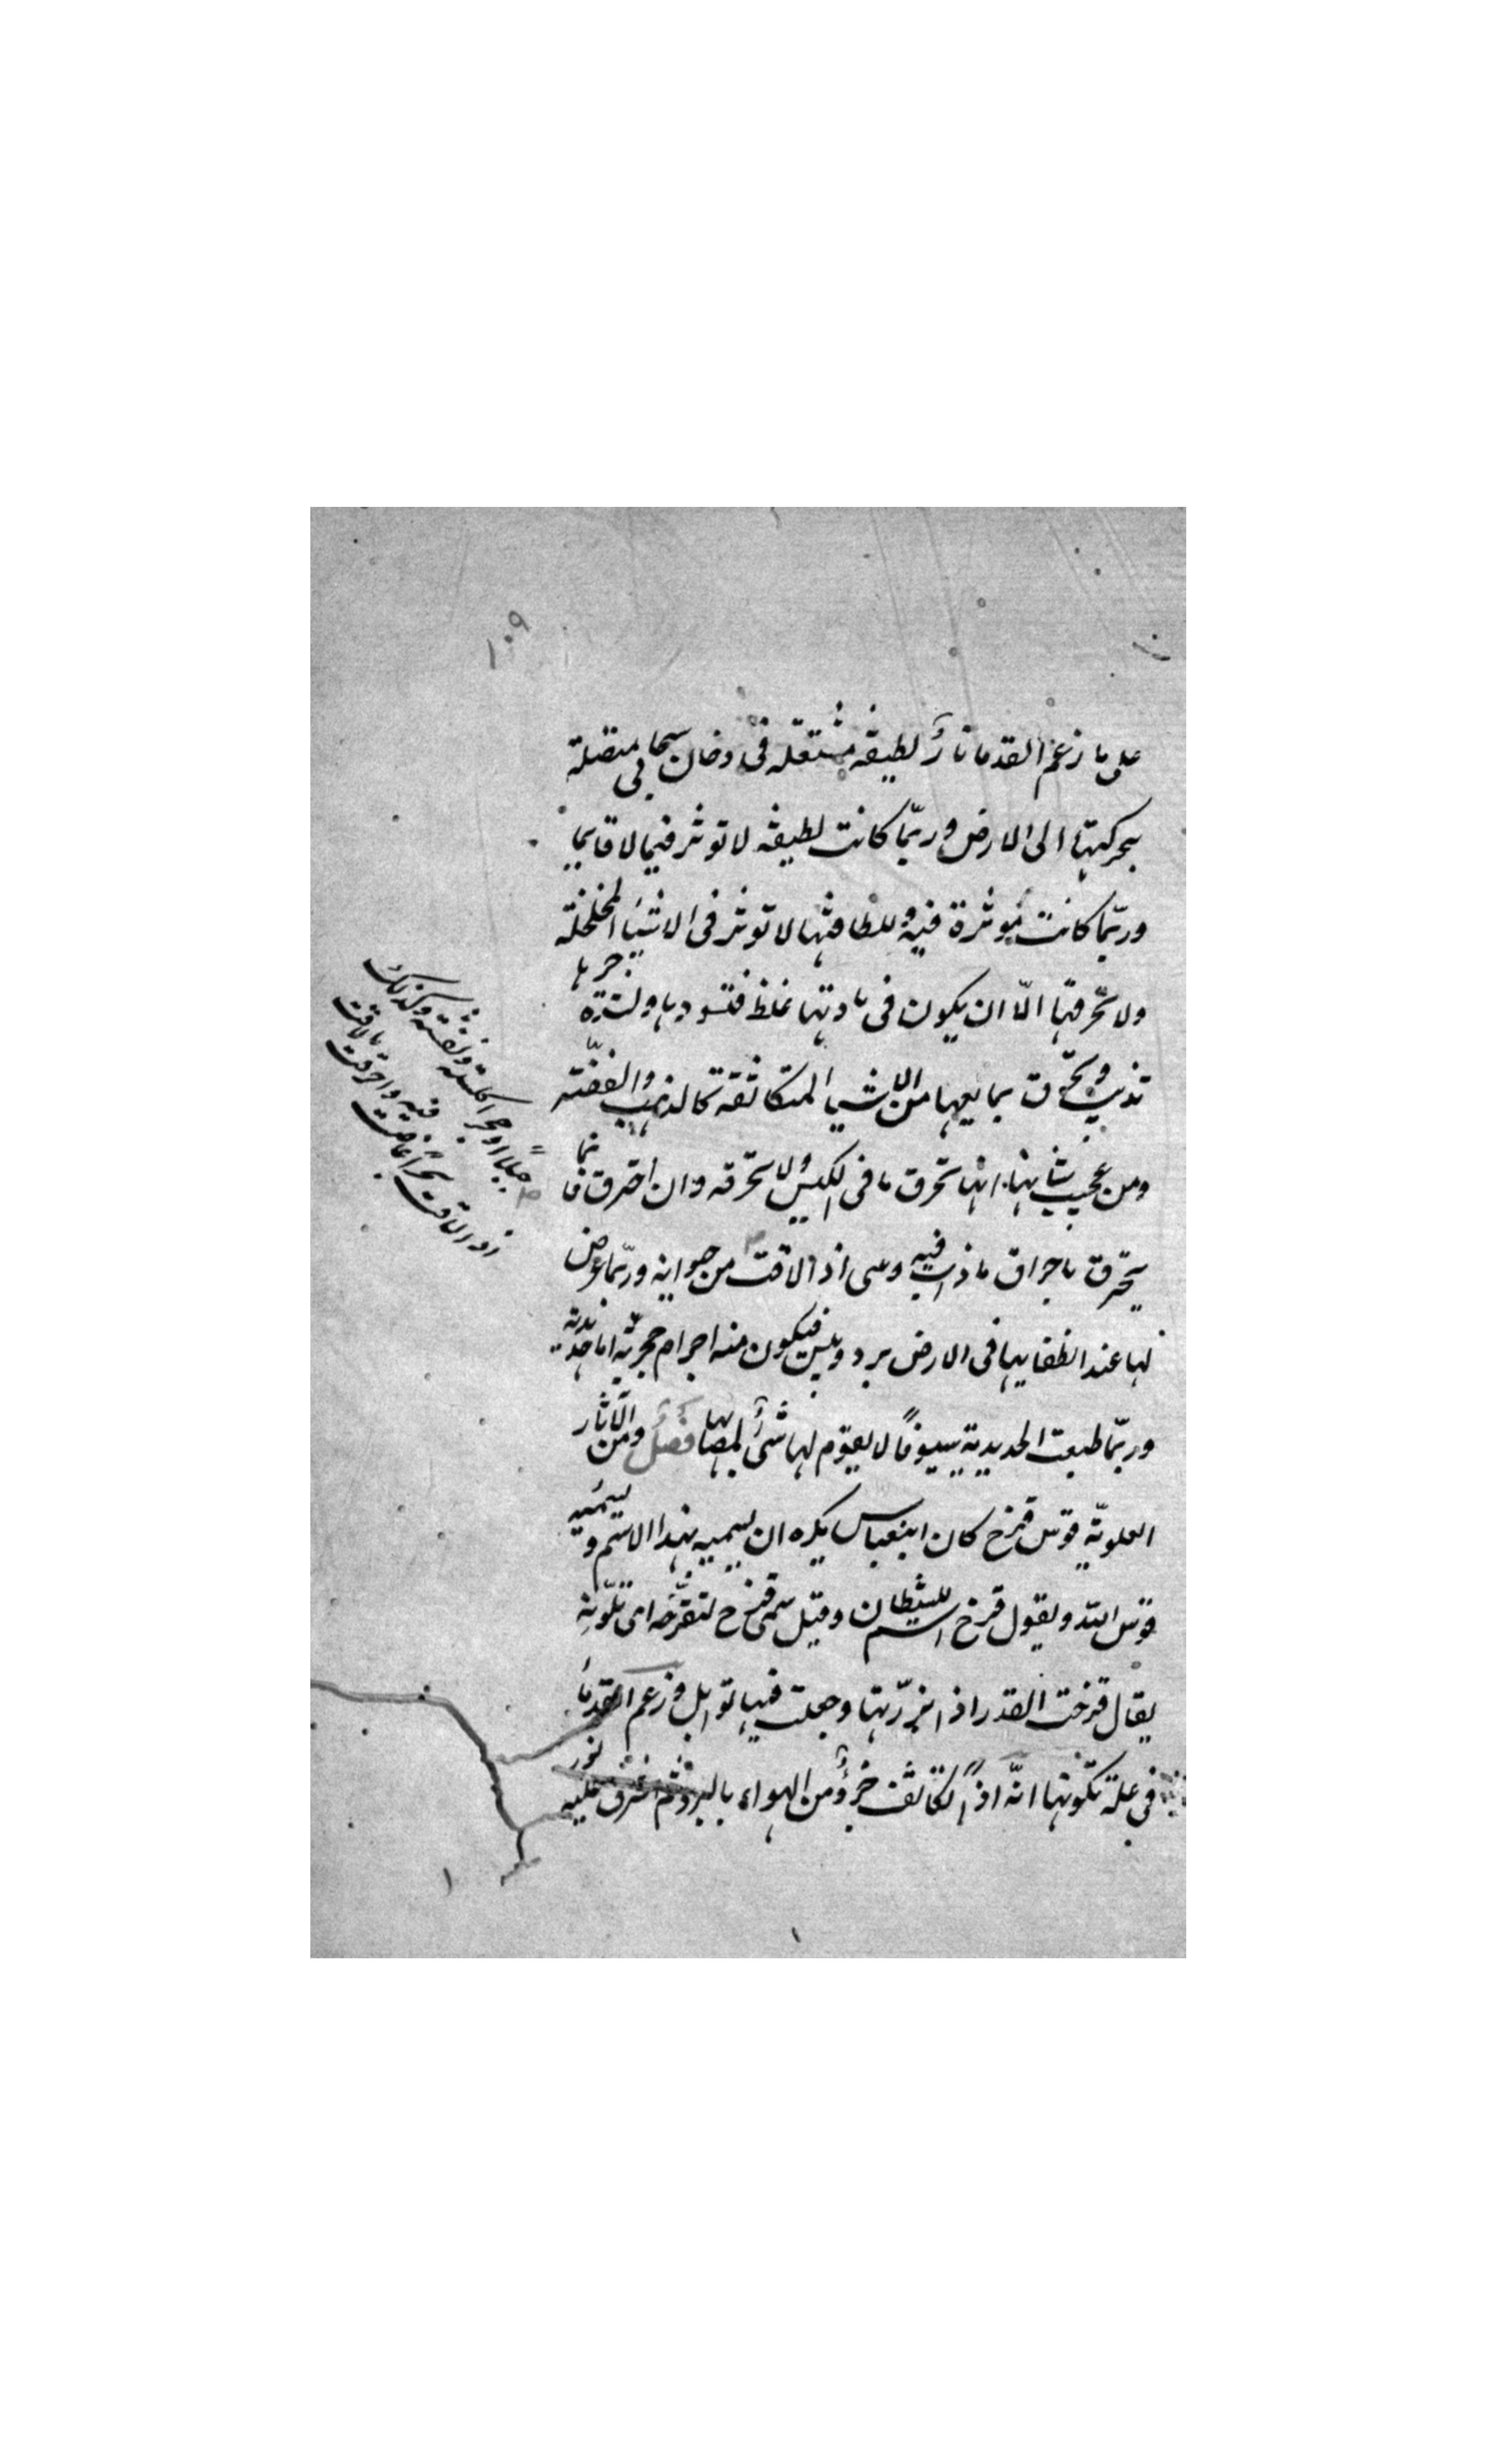 ١٠٩
على ما زعم القدما نارٌ لطيفه مشتعله فى دخان سحابى متصلة
بحركتها الى الارض وربّما كانت لطيفه لا توثر فيما لاقايها
وربّما كانت موثرة فيه وللطافتها لا توثر فى الاشيا المخلخلة
ولا تحرقها الّا ان يكون فى مادتها غلظ فتسودها ولشدة حرها
تذيب وتحرق بما يعها من الاشيا المتكاثفة كالذهب والفضّة
ومن عجيب شانها انها تحرق ما فى الكيس ولا تحرقه وان احترق فانما
يحترق باحراق ما ذاب فيه وهى اذا لاقت من حيوانه وربّما عرض
لها عند انطفايها فى الارض برد ويبس فيكون منه اجرام حجرية اما حديدية
وربّما طبعت الحديدية سيوفاً لا يقوم لها شئ لمضايها فصل ومن الآثار
العلويّه قوس قزح كان ابن عباس يكره ان يسميه بهذا الاسم ويسميه
قوس الله ويقول قزح اسم للشيطان وقيل سمى قزح لتقزّحه اى تلوّنه
يقال قزحت القدر اذا بزّرتها وجعلت فيها توابل وزعم القدما
فى علة تكونها انّه اذا تكاثف جزؤ من الهواء بالبرد ثم اشرق عليه نور
جبلاً او حجرا كلسته ونفته وكذلك
اذا لاقت بحراً غاصت فيه واحرقت ما لاقت